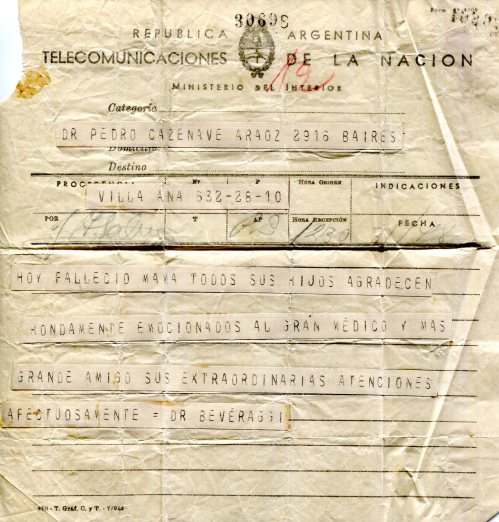 30696
REPUBLICA ARGENTINA
TELECOMUNICACIONES DE LA NACION
MINISTERIO DEL INTERIOR
Categoría
DR PEDRO CAZENAVE ARAOZ 2916 BAIRES
Domicilio
Destino
PROCEDENCIA Nº P HORA ORIGEN INDICACIONES
VILLA ANA 632-28-10
POR T AP HORA RECEPCIÓN FECHA
1230
HOY FALLECIO MAMA TODOS SUS HIJOS AGRADECEN
HONDAMENTE EMOCIONADOS AL GRAN MÉDICO Y MAS
GRANDE AMIGO SUS EXTRAORDINARIAS ATENCIONES
AFECTUOSAMENTE = DR BEVERAGGI
T. Gráf. C. y T. - 7/948